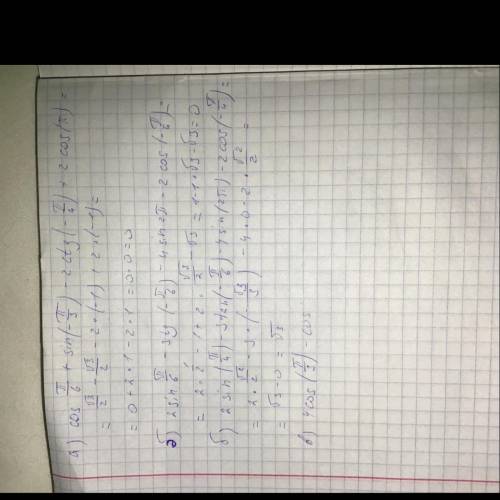 а) cos π/6 + sin(-π/3) - 2ctg(-π/4) + 2cos(π) =
= √3/2 - √3/2 - 2·(-1) + 2·(-1) =
= 0 + 2·1 - 2·1 = 0·0 = 0
2sin π/6 - 3tg(-π/6) - 4sin2π - 2cos(-π/6) =
= 2·1/2 - 1 + 2·√3/2 - √3 = 1-1+√3-√3 = 0
б) 2sin(π/4) - 3tan(-π/6) - 4sin(2π) - 2cos(-π/4) =
= 2·√2/2 - 3·(-√3/3) - 4·0 - 2·√2/2 =
= √3 - 0 = √3
в) 4cos(π/2) - cos